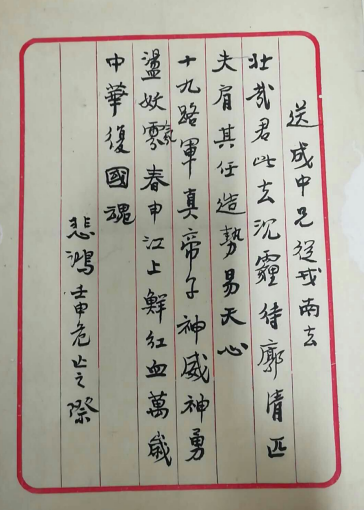 送成中兄從戎南去
壯哉君此去沉霾待廓清匹
夫肩其任造勢易天心
十九路軍真帝子神威神勇
盪妖氛春申江上鮮紅血萬歲
中華復國魂
悲鴻壬申危止之際